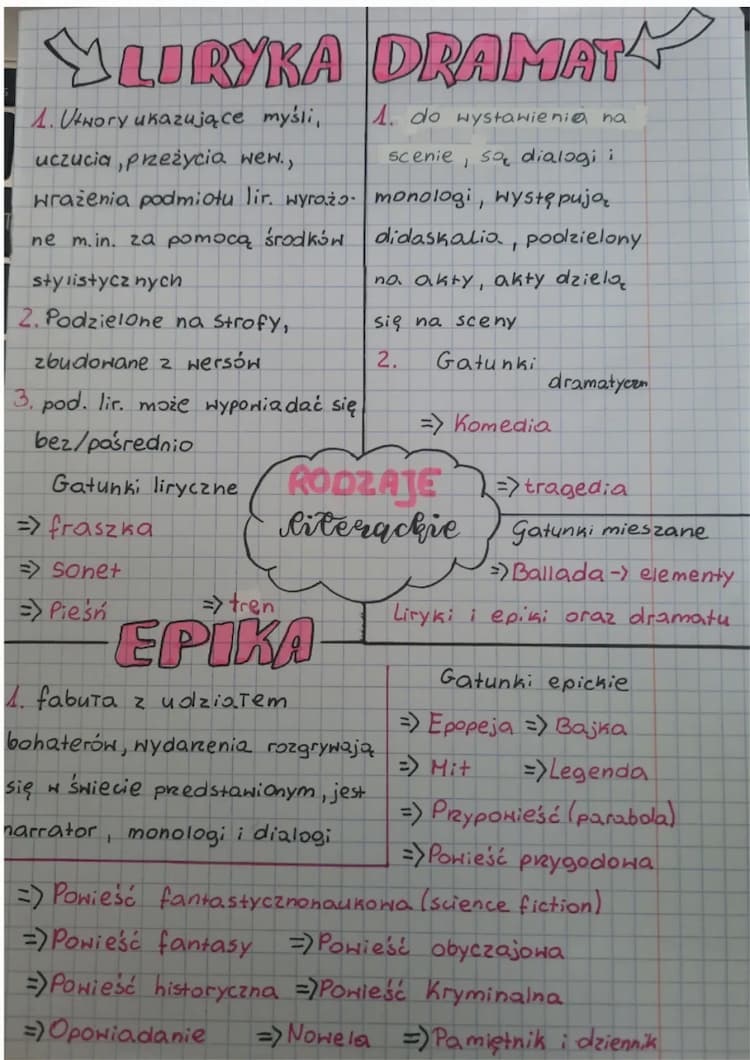 LIRYKA
1. Utwory ukazujące myśli,
uczucia, przeżycia wew.,
wrażenia podmiotu lir. wyrażo-
ne m.in. za pomocą środków
stylistycznych
2. Podzielone na strofy,
zbudowane z wersów
3. pod. lir. może wypowiadać się
bez/pośrednio
Gatunki liryczne
=> fraszka
=> sonet
=> Pieśń => tren
DRAMAT
1. do wystawienia na
scenie, są dialogi i
monologi, występują
didaskalia, podzielony
na akty, akty dzielą
się na sceny
2. Gatunki
dramatyczn
=> Komedia
=> tragedia
RODZAJE
literackie
Gatunki mieszane
=> Ballada -> elementy
Liryki i epiki oraz dramatu
EPIKA
1. fabuła z udziałem
bohaterów, wydarzenia rozgrywają
się w świecie przedstawionym, jest
narrator, monologi i dialogi
Gatunki epickie
=> Epopeja => Bajka
=> Mit => Legenda
=> Przypowieść (parabola)
=> Powieść przygodowa
=> Powieść fantastycznonaukowa (science fiction)
=> Powieść fantasy => Powieść obyczajowa
=> Powieść historyczna => Powieść Kryminalna
=> Opowiadanie => Nowela => Pamiętnik i dziennik